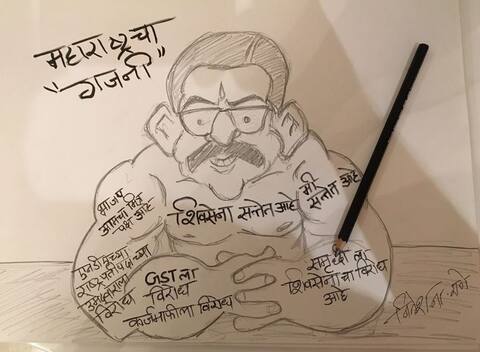 महाराष्ट्रचा
"गजनी"
भाजप
आमचा मित्र
पक्ष आहे
शिवसेना सत्तेत आहे
मी
सत्तेत आहे
एनडीएच्या
राष्ट्रपतीपदाच्या
उमेदवाराला
विरोध
GST ला
विरोध
कर्जमाफीला विरोध
समृद्धी ला
शिवसेनेचा विरोध
आहे